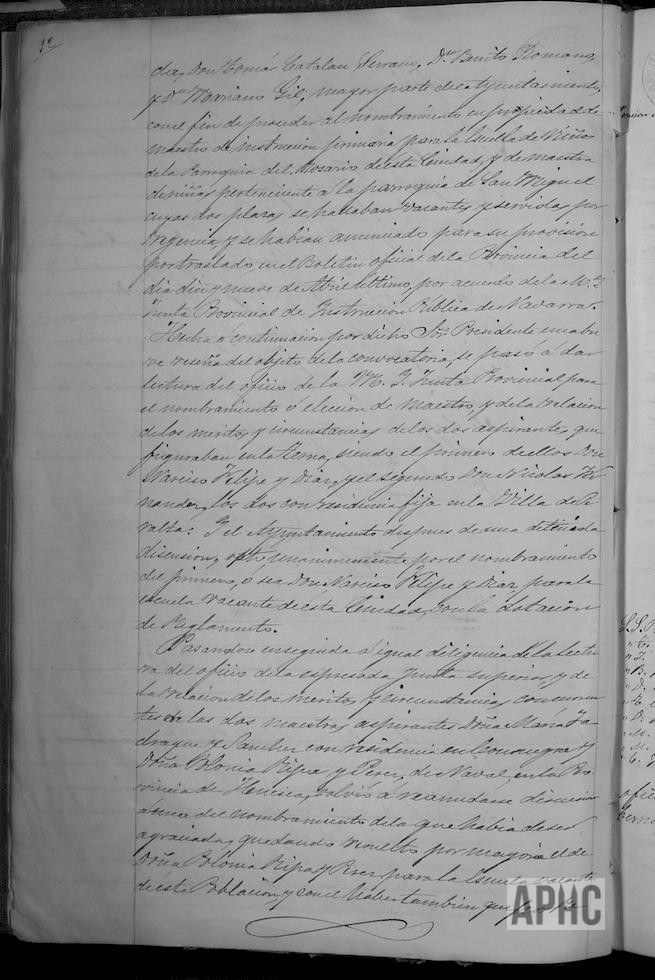 12
dez, Don Tomás Catalan Serrano, Dn Benito Romano,
y Dn Mariano Gil, mayor parte de Ayuntamiento,
con el fin de proceder al nombramiento en propiedad de
maestro de instruccion primaria para la Escuela de Niños
de la Parroquia del Rosario de esta Ciudad, y de maestra
de niñas perteneciente á la parroquia de San Miguel
cuyas dos plazas se hallaban vacantes y servidas por
regencia, y se habian anunciado para su provision
por traslado en el Boletin oficial de la Provincia del
dia diez y nueve de Abril último, por acuerdo de la M. I.
Junta Provincial de Instruccion Pública de Navarra.
Hecha á continuacion por dicho Sor Presidente una bre
ve reseña del objeto de la convocatoria, se pasó á dar
lectura del oficio de la M. I. Junta Provincial para
el nombramiento ó eleccion de Maestro, y de la relacion
de los meritos y circunstancias de los dos aspirantes que
figuraban en la terna, siendo el primero de ellos Don
Narciso Felipe y Diaz, y el segundo Don Nicolas
nandez, los dos con residencia fija en la Villa de Pe
ralta: Y el Ayuntamiento despues de una detenida
discusion, optó unanimemente por el nombramiento
del primero, ó sea Don Narciso Felipe y Diaz, para la
escuela vacante de esta Ciudad, con la dotacion
de Reglamento.
Pasandose enseguida á igual diligencia de la lectu
ra del oficio de la espresada Junta superior, y de
la relacion de los meritos y circunstancias concurren
tes de las dos maestras aspirantes Doña Maria Ja
draque y Sanchez con residencia en Consuegra, y
Doña Polonia Ripa y Perez, de Naval, en la Pro
vincia de Huesca, volvió á reanudarse discusion
acerca del nombramiento de la que habia de ser
agraciada, quedando resuelto por mayoria el de
Doña Polonia Ripa y Perez para la Escuela vacante
de esta Poblacion, y con el haber tambien que
APHC